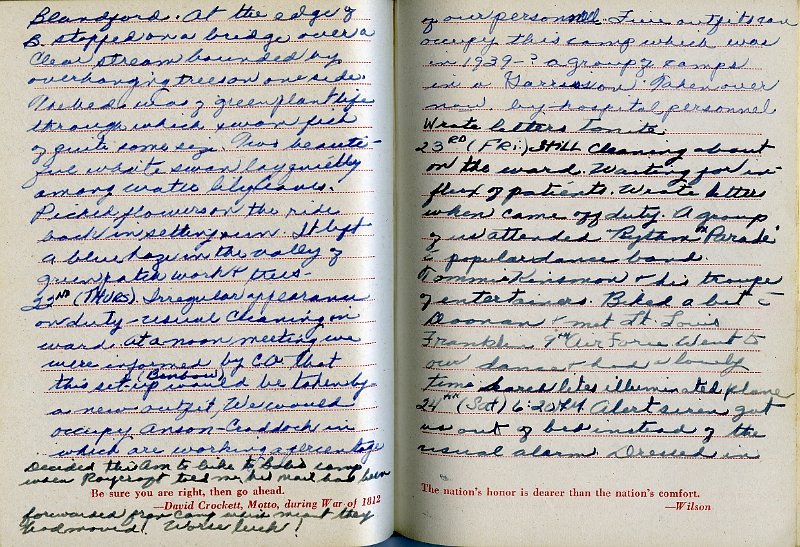 Blandford. At the edge of
B. stopped on a bridge over a
clear stream bounded by
overhanging trees on one side.
The bed was of green plant life
through which swam fish
of quite some size. Two beauti-
ful white swan lay quietly
among water lily leaves.
Picked flowers on the ride
back in setting sun. It left
a blue haze in the valley of
green patch work & trees-
22ND (THURS). Irregular appearance
on duty - usual cleaning on
ward. At a noon meeting we
were informed by C.O. that
this set-up (Binbow) would be taken by
a new outfit. We would
occupy Anson-Craddock in
which are working a percentage
Decided this Am to bike to Bob's camp
when Roycroft told me his mail had been
Be sure you are right, then go ahead.
—David Crockett, Motto, during War of 1812
forwarded from camp which meant they
had moved! Worse luck!
of our personnel. Five outfits can
occupy this camp which was
in 1939-? a group of camps
in a Garrison. Taken over
now by hospital personnel
Wrote letters tonite.
23RD (FRI.) Still cleaning about
on the ward. Waiting for in-
flux of patients. Wrote letters
when came off duty. A group
of us attended "Python Parade"
a popular dance band.
Tommie Kinsman & his troupe
of entertainers. Biked a bit c̄
Donovan & met Lt. Louis
Franklin 9th Air Force. Went to
our dance & had a lovely
time. Search lites illuminated plane
24TH (Sat) 6:20 AM Alert siren got
us out of bed instead of the
usual alarm. Dressed in
The nation's honor is dearer than the nation's comfort.
—Wilson